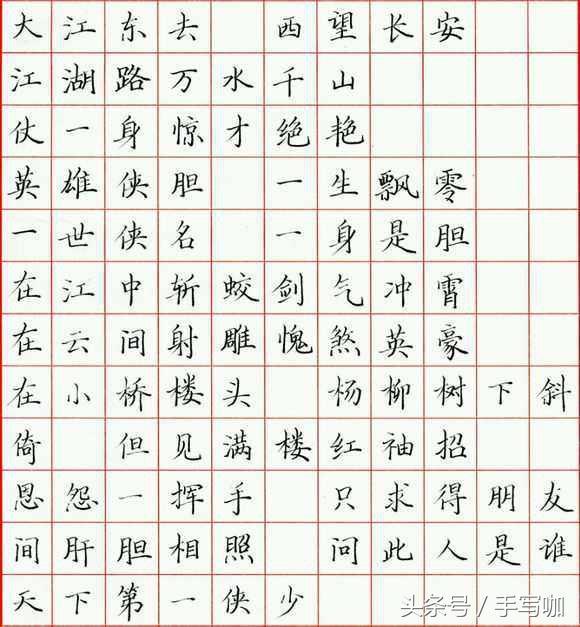 大江东去 西望长安
江湖路万水千山
仗一身惊才绝艳
英雄侠胆 一生飘零
一世侠名 一身是胆
在江中斩蛟剑气冲霄
在云间射雕愧煞英豪
在小桥楼头 杨柳树下斜
倚 但见满楼红袖招
恩怨一挥手 只求得朋友
间肝胆相照 问此人是谁
天下第一侠少
头条号 / 手写咖